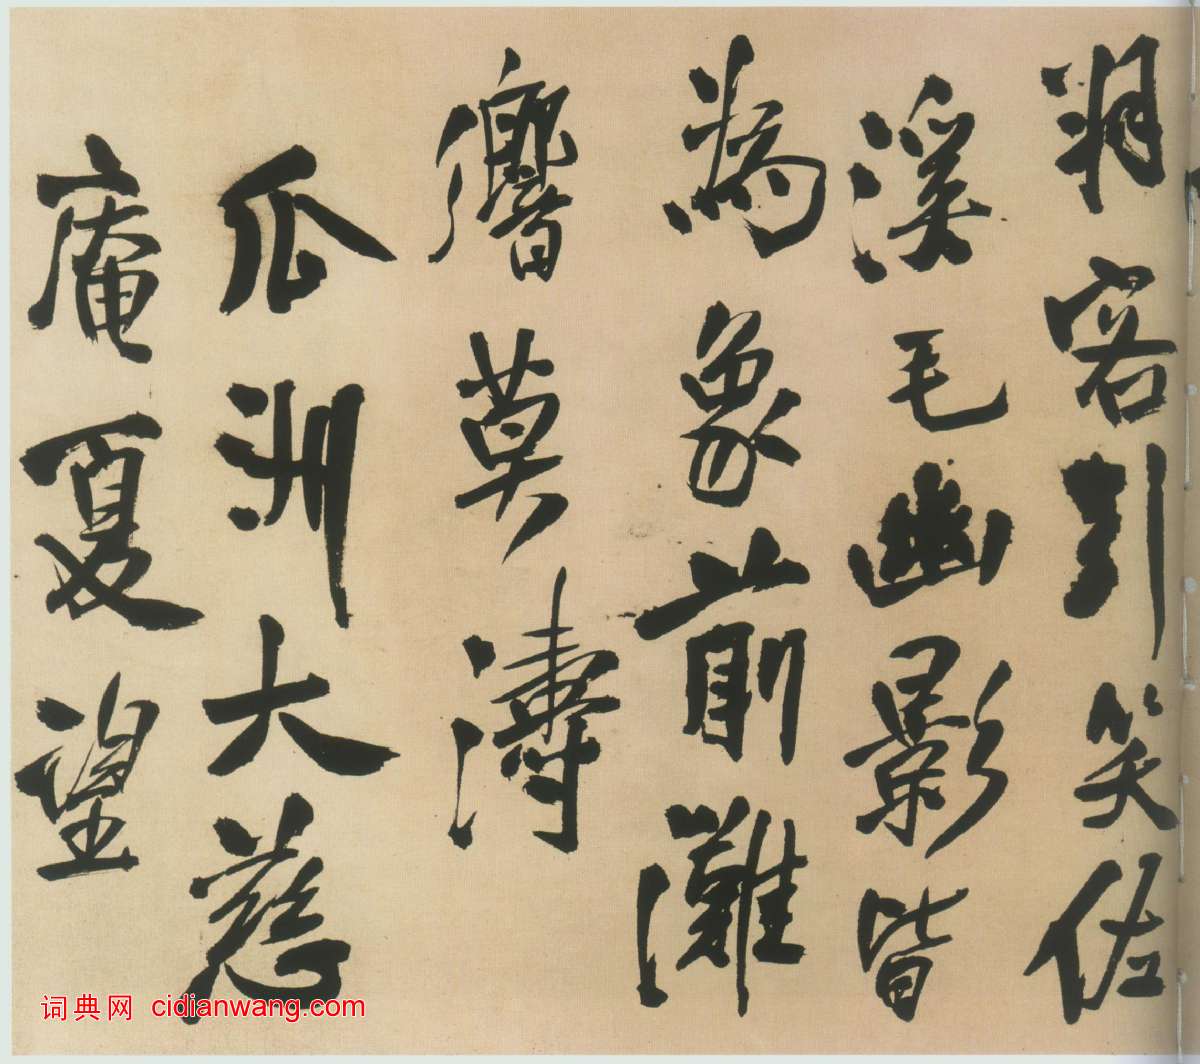 羽客引笑佐
溪毛幽影皆
為象前灘
響莫濤
瓜洲大慈
庵夏望
词典网 cidianwang.com